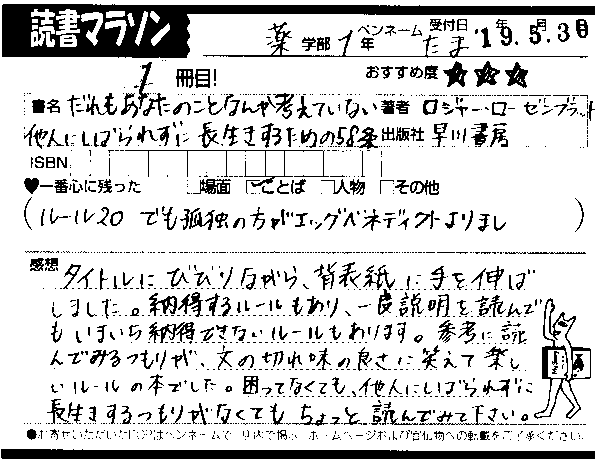 読書マラソン
薬 学部 1 年 ペンネーム たま 受付日 '19年5月30日
1 冊目! おすすめ度 ★★★
書名 だれもあなたのことなんか考えていない 著者 ロジャー・ローゼンブラット
他人にしばられずに長生きするための58条 出版社 早川書房
ISBN
♥一番心に残った □場面 ☑ことば □人物 □その他
(ルール20 でも孤独の方がエッグベネディクトよりまし)
感想 タイトルにびびりながら、背表紙に手を伸ば
しました。納得するルールもあり、一良説明を読んで
もいまいち納得できないルールもあります。参考に読
んでみるつもりが、文の切れ味の良さに笑えて楽し
いルールの本でした。困ってなくても、他人にしばられずに
長生きするつもりがなくてもちょっと読んでみて下さい。